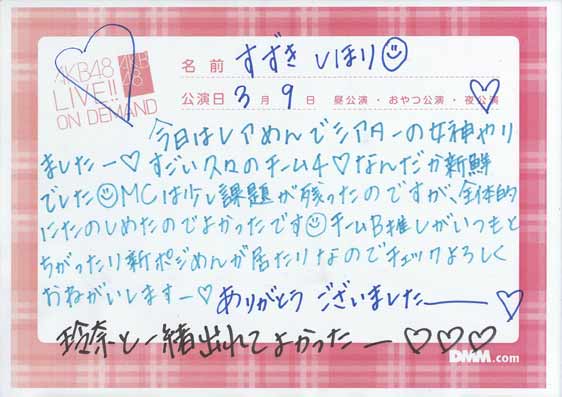 AKB48
LIVE!!
ON DEMAND
AKB
48
名前 すずき しほり
公演日 3月9日 昼公演・おやつ公演・夜公演
今日はレアめんでシアターの女神やり
ましたー♡ すごい久々のチーム4♡なんだか新鮮
でした☺MCは少し課題が残ったのですが、全体的
にたのしめたのでよかったです☺チームB推しがいつもと
ちがったり新ポジめんが居たりなのでチェックよろしく
おねがいしますー♡ ありがとうございましたー♡
玲奈と一緒出れてよかったー♡♡♡
DMM.com